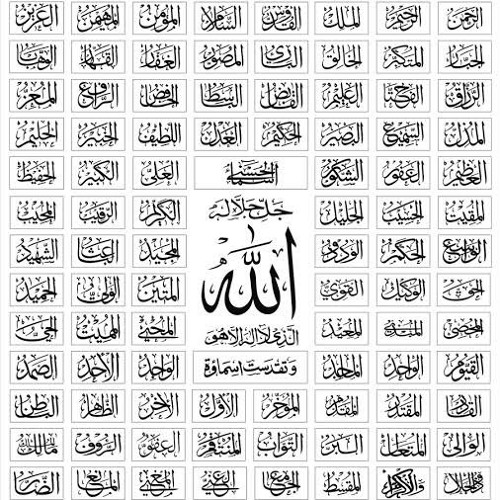 الرحمن الرحيم الملك القدوس السلام المؤمن المهيمن العزيز
الجبار المتكبر الخالق البارئ المصور الغفار القهار الوهاب
الرزاق الفتاح العليم القابض الباسط الخافض الرافع المعز
المذل السميع البصير الحكم العدل اللطيف الخبير الحليم
العظيم الغفور الشكور الأسماء الحسنى العلي الكبير الحفيظ
المقيت الحسيب الجليل جل جلاله الكريم الرقيب المجيب
الواسع الحكيم الودود الله المجيد الباعث الشهيد
الحق الوكيل القوي المتين الولي الحميد
المحصي المبدئ المعيد الذي لا إله إلا هو المحيي المميت الحي
القيوم الواجد الماجد وتقدست أسماؤه الواحد الأحد الصمد
القادر المقتدر المقدم المؤخر الأول الآخر الظاهر الباطن
الوالي المتعال البر التواب المنتقم العفو الرؤوف مالك الملك
ذو الجلال والإكرام المقسط الجامع الغني المغني المانع الضار